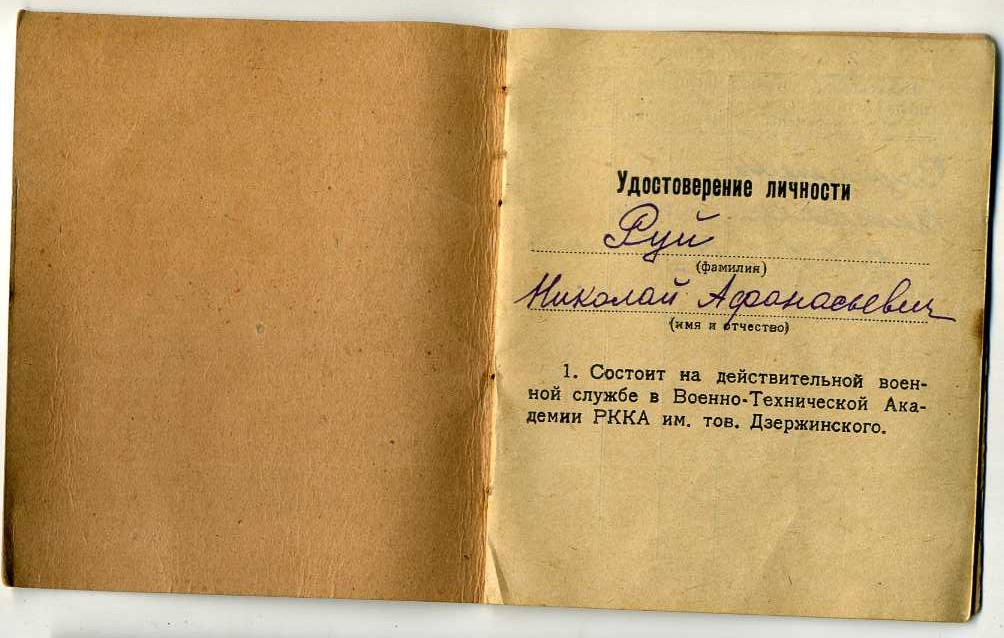 Удостоверение личности
Руй
(фамилия)
Николай Афанасьевич
(имя и отчество)
1. Состоит на действительной воен-
ной службе в Военно-Технической Ака-
демии РККА им. тов. Дзержинского.